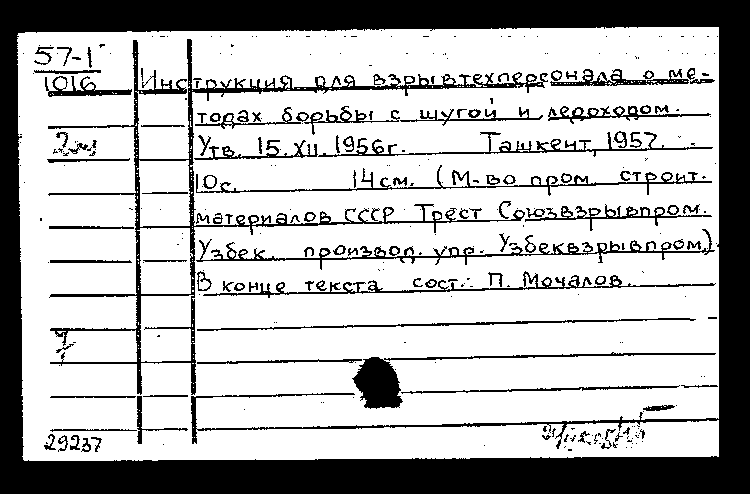 57-1
1016
Инструкция для взрывтехперсонала о ме-
тодах борьбы с шугой и ледоходом.
Утв. 15.XII.1956г. Ташкент, 1957.
10с. 14см. (М-во пром. строит.
материалов СССР Трест Союзвзрывпром.
Узбек. производ. упр. Узбеквзрывпром.)
В конце текста сост.: П. Мочалов.
29237